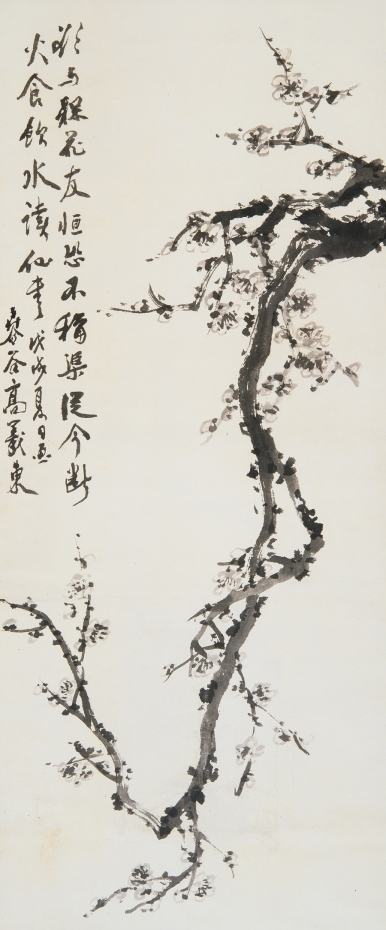 欲与梅花友恒恐不稱渠從今断
火食飲水讀仙書戊戌夏日画
谷高義東